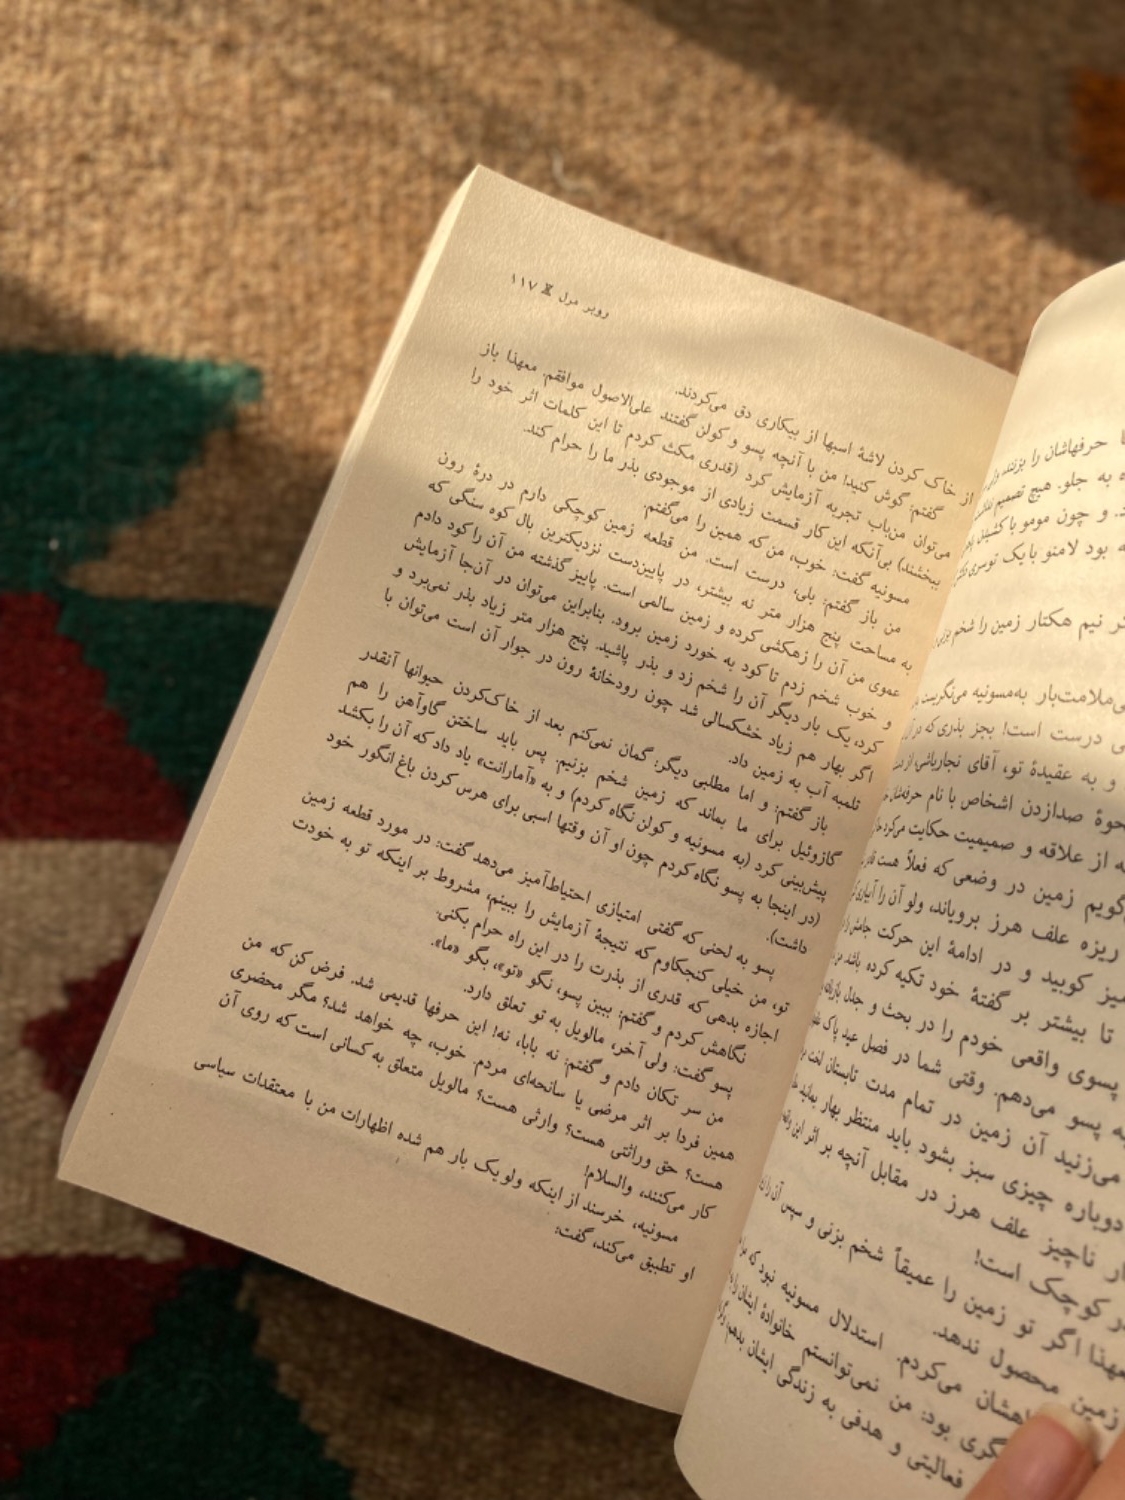 روبر مرل ۱۱۷
از خاک کردن لاشهٔ اسبها از بیکاری دق می‌کردند.
گفتم: گوش کنید! من با آنچه پسو و کولن گفتند علی‌الاصول موافقم. معهذا باز
می‌توان من‌باب تجربه آزمایش کرد (قدری مکث کردم تا این کلمات اثر خود را
ببخشند) بی‌آنکه این کار قسمت زیادی از موجودی بذر ما را حرام کند.
مسونیه گفت: خوب، من که همین را می‌گفتم.
من باز گفتم: بلی، درست است. من قطعه زمین کوچکی دارم در درهٔ رون
به مساحت پنج هزار متر نه بیشتر، در پایین‌دست نزدیکترین بال کوه سنگی که
عموی من آن را زهکشی کرده و زمین سالمی است. پاییز گذشته من آن را کود دادم
و خوب شخم زدم تا کود به خورد زمین برود. بنابراین می‌توان در آن‌جا آزمایش
کرد، یک بار دیگر آن را شخم زد و بذر پاشید. پنج هزار متر زیاد بذر نمی‌برد و
اگر بهار هم زیاد خشکسالی شد چون رودخانهٔ رون در جوار آن است می‌توان با
تلمبه آب به زمین داد.
باز گفتم: و اما مطلبی دیگر: گمان نمی‌کنم بعد از خاک‌کردن حیوانها آنقدر
گازوئیل برای ما بماند که زمین شخم بزنیم. پس باید ساختن گاوآهن را هم
پیش‌بینی کرد (به مسونیه و کولن نگاه کردم) و به «آمارانت» یاد داد که آن را بکشد
(در اینجا به پسو نگاه کردم چون او آن وقتها اسبی برای هرس کردن باغ انگور خود
داشت).
پسو به لحنی که گفتی امتیازی احتیاط‌آمیز می‌دهد گفت: در مورد قطعه زمین
تو، من خیلی کنجکاوم که نتیجهٔ آزمایش را ببینم، مشروط بر اینکه تو به خودت
اجازه بدهی که قدری از بذرت را در این راه حرام بکنی.
نگاهش کردم و گفتم: ببین پسو، نگو «تو»، بگو «ما».
پسو گفت: ولی آخر، مالویل به تو تعلق دارد.
من سر تکان دادم و گفتم: نه بابا، نه! این حرفها قدیمی شد. فرض کن که من
همین فردا بر اثر مرضی یا سانحه‌ای مردم. خوب، چه خواهد شد؟ مگر محضری
هست؟ حق وراثتی هست؟ وارثی هست؟ مالویل متعلق به کسانی است که روی آن
کار می‌کنند، والسلام!
مسونیه، خرسند از اینکه ولو یک بار هم شده اظهارات من با معتقدات سیاسی
او تطبیق می‌کند، گفت:
حرفهاشان را بزنند
به جلو. هیچ تصمیم
و چون مومو با
بود لامتو با یک توسری
نیم هکتار زمین را شخم بزنی
ملامت‌بار به‌مسونیه می‌نگریست
درست است! بجز بذری که در
و به عقیدهٔ تو، آقای نجارباشی،
صدازدن اشخاص با نام
از علاقه و صمیمیت حکایت می‌کرد
زمین در وضعی که فعلاً هست
ریزه علف هرز برویاند، ولو آن را آبیاری
کوبید و در ادامهٔ این حرکت
تا بیشتر بر گفتهٔ خود تکیه کرده باشد
پسوی واقعی خودم را در بحث و جدل
پسو می‌دهم. وقتی شما در فصل عید پاک
می‌زنید آن زمین در تمام مدت تابستان لخت
دوباره چیزی سبز بشود باید منتظر بهار بمانید
ناچیز علف هرز در مقابل آنچه بر اثر این
کوچک است!
اگر تو زمین را عمیقاً شخم بزنی و سپس آن را
زمین محصول ندهد.
می‌کردم. استدلال مسونیه نبود که
بود: من نمی‌توانستم خانوادهٔ ایشان را
فعالیتی و هدفی به زندگی ایشان بدهم